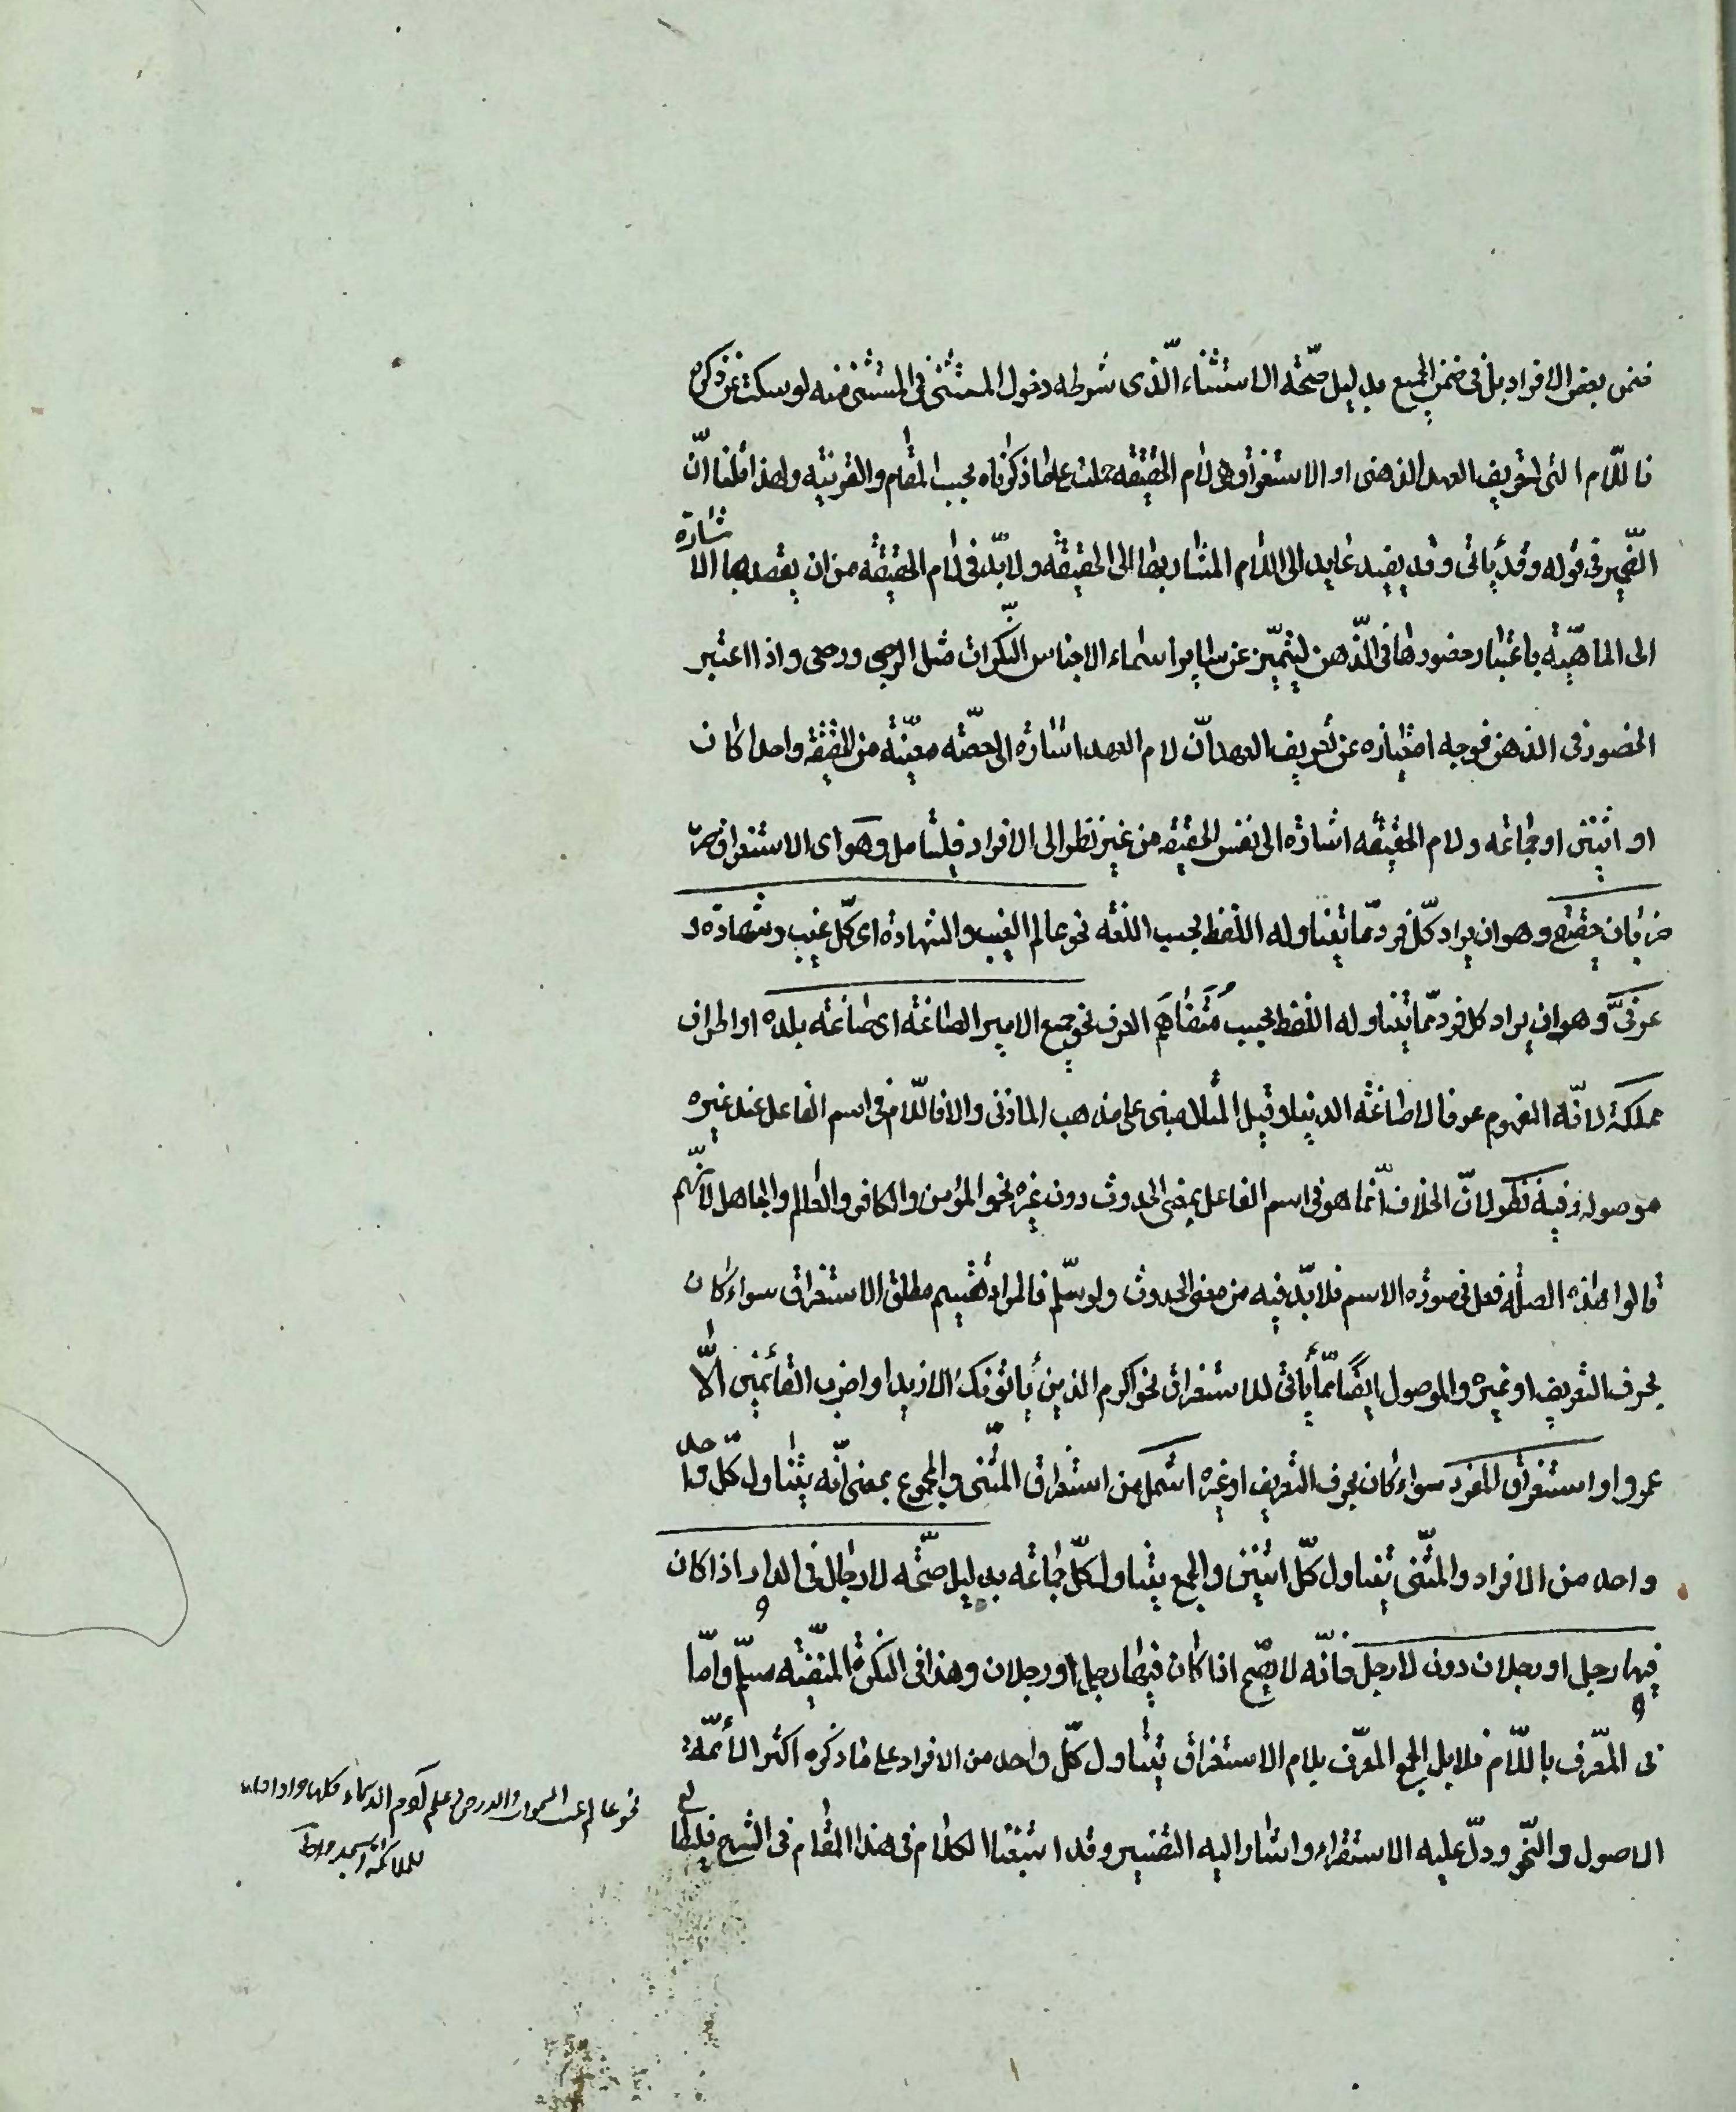 ضمن بعض الافراد بل فى ضمن الجميع بدليل صحّة الاستثناء الّذى شرطه دخول المستثنى فى المستثنى منه لو سكت عن ذكره
فاللّام التى لتعريف العهد الذهنى او الاستغراق هى لام الحقيقة حملت على ما ذكرناه بحسب المقام والقرينة ولهذا قلنا انّ
الضّمير فى قوله وقد يأتى وقد يفيد عايد الى اللام المشار بها الى الحقيقة ولا بدّ فى لام الحقيقة من ان يقصد بها الاشارة
الى الماهيّة باعتبار حضورها فى الذّهن ليتميّز عن ساير اسماء الاجناس النّكرات مثل الرجعى ورجعى واذا اعتبر
الحضور فى الذهن فوجه امتيازه عن تعريف العهد انّ لام العهد اشارة الى حصّة معيّنة من الحقيقة واحدا كان
او اثنين او جماعة ولام الحقيقة اشارة الى نفس الحقيقة من غير نظر الى الافراد فليتامل وهو اى الاستغراق
ضربان حقيقى وهو ان يراد كلّ فرد ممّا يتناوله اللفظ بحسب اللغة نحو عالم الغيب والشهادة اى كلّ غيب وشهادة و
عرفىّ وهو ان يراد كل فرد ممّا يتناوله اللفظ بحسب مُتَفاهَم العرف نحو جمع الامير الصاغة اى صاغة بلده او اطراف
مملكته لانّه المفهوم عرفا لا صاغة الدنيا وقيل المثال مبنى على مذهب المازنى والا فاللّام فى اسم الفاعل عند غيره
موصولة وفيه نظر لانّ الخلاف انّما هو فى اسم الفاعل بمعنى الحدوث دون غيره نحو المؤمن والكافر والعالم والجاهل لأنّهم
قالوا هذه الصلة فعل فى صورة الاسم فلا بدّ فيه من معنى الحدوث ولو سلّم فالمراد تقسيم مطلق الاستغراق سواء كان
بحرف التعريف او غيره والموصول ايضا ممّا يأتى للاستغراق نحو اكرم الذين يأتونك الا زيدا او اضرب القأئمين الّا
عمروا واستغراق المفرد سواء كان بحرف التعريف او غيره اشمل من استغراق المثّنى والمجموع بمعنى انّه يتناول كلّ واحد
واحد من الافراد والمثّنى يتناول كلّ اثنين والجمع يتناول كلّ جماعة بدليل صحّة لا رجال فى الدار اذا كان
فيها رجل او رجلان دون لا رجل فانّه لا يصّح اذا كان فيها رجل او رجلان وهذا فى النكرة المنفيّة مسلّم وامّا
فى المعّرف باللّام فلا بل الجمع المعّرف بلام الاستغراق يتناول كلّ واحد من الافراد على ما ذكره اكثر الأئمّة
الاصول والنّحو ودلّ عليه الاستقراء واشار اليه ائمة التفسير وقد اشبعنا الكلام فى هذا المقام فى الشرح فليطالع
نحو اعلم غيب السموات والارض وعلم آدم الاسماء كلها واذ قلنا
للملائكة اسجدوا